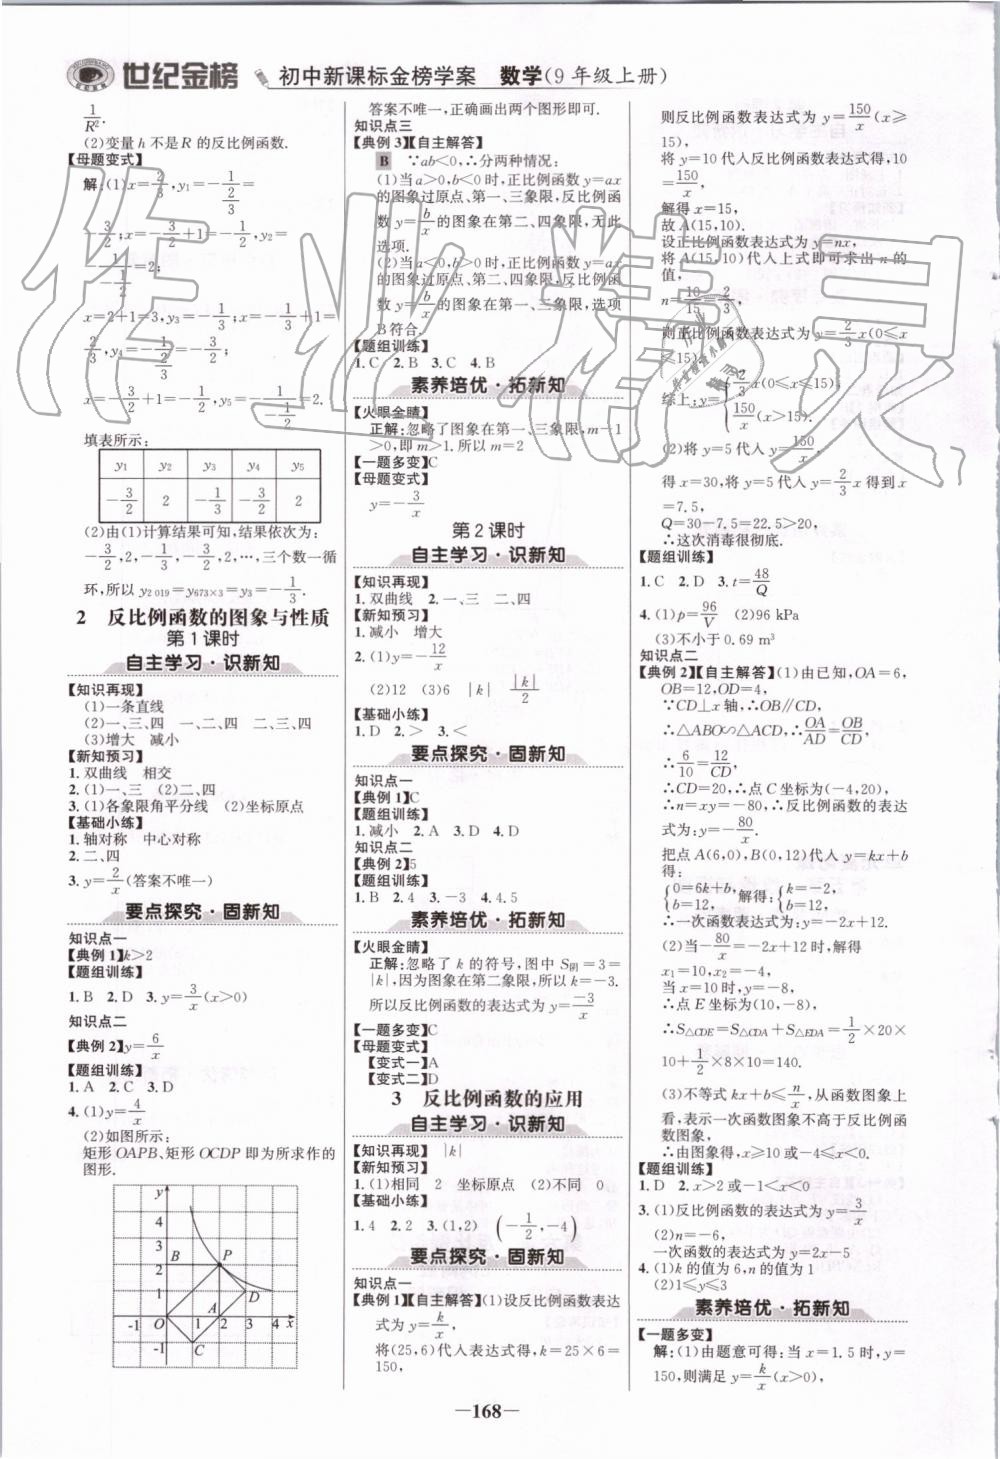 世纪金榜 初中新课标金榜学案 数学(9年级上册)
1/R².
(2)变量h不是R的反比例函数.
【母题变式】
解:(1)x=2/3,y₁=-1/(2/3)=
-3/2;x=-3/2+1=-1/2,y₂=
-1/(-1/2)=2;
x=2+1=3,y₃=-1/3;x=-1/3+1=
2/3,y₄=-1/(2/3)=-3/2;
x=-3/2+1=-1/2,y₅=-1/(-1/2)=2.
填表所示:
y₁ y₂ y₃ y₄ y₅
-3/2 2 -1/3 -3/2 2
(2)由(1)计算结果可知,结果依次为:
-3/2,2,-1/3,-3/2,2,…,三个数一循
环,所以y₂₀₁₉=y₆₇₃ₓ₃=y₃=-1/3.
2 反比例函数的图象与性质
第1课时
自主学习·识新知
【知识再现】
(1)一条直线
(2)一、三、四 一、二、四 二、三、四
(3)增大 减小
【新知预习】
1.双曲线 相交
2.(1)一、三 (2)二、四
3.(1)各象限角平分线 (2)坐标原点
【基础小练】
1.轴对称 中心对称
2.二、四
3.y=2/x(答案不唯一)
要点探究·固新知
知识点一
【典例1】k>2
【题组训练】
1.B 2.D 3.y=3/x(x>0)
知识点二
【典例2】y=6/x
【题组训练】
1.A 2.C 3.D
4.(1)y=4/x
(2)如图所示:
矩形OAPB、矩形OCDP即为所求作的
图形.
y
4
3
B 2 P
1 D
-1 O 1 A 2 3 4 x
-1 C
答案不唯一,正确画出两个图形即可.
知识点三
【典例3】【自主解答】
B ∵ab<0,∴分两种情况:
(1)当a>0,b<0时,正比例函数y=ax
的图象过原点、第一、三象限,反比例函
数y=b/x的图象在第二、四象限,无此
选项.
(2)当a<0,b>0时,正比例函数y=ax
的图象过原点、第二、四象限,反比例函
数y=b/x的图象在第一、三象限,选项
B符合.
【题组训练】
1.C 2.B 3.C 4.B
素养培优·拓新知
【火眼金睛】
正解:忽略了图象在第一、三象限,m-1
>0,即m>1.所以m=2
【一题多变】C
【母题变式】
y=-3/x
第2课时
自主学习·识新知
【知识再现】
1.双曲线 2.一、三 二、四
【新知预习】
1.减小 增大
2.(1)y=-12/x
(2)12 (3)6 |k| |k|/2
【基础小练】
1.D 2.> 3.<
要点探究·固新知
知识点一
【典例1】C
【题组训练】
1.减小 2.A 3.D 4.D
知识点二
【典例2】5
【题组训练】
1.B 2.4 3.-3 4.4.5
素养培优·拓新知
【火眼金睛】
正解:忽略了k的符号,图中S阴=3=
|k|,因为图象在第二象限,所以k=-3.
所以反比例函数的表达式为y=-3/x
【一题多变】C
【母题变式】
【变式一】A
【变式二】D
3 反比例函数的应用
自主学习·识新知
【知识再现】 |k|
【新知预习】
1.(1)相同 2 坐标原点 (2)不同 0
【基础小练】
1.4 2.2 3.(1,2) (-1/2,-4)
要点探究·固新知
知识点一
【典例1】【自主解答】(1)设反比例函数表达
式为y=k/x,
将(25,6)代入表达式得,k=25×6=
150,
则反比例函数表达式为y=150/x(x≥
15),
将y=10代入反比例函数表达式得,10
=150/x,
解得x=15,
故A(15,10).
设正比例函数表达式为y=nx,
将A(15,10)代入上式即可求出n的
值,
n=10/15=2/3,
则正比例函数表达式为y=2/3x(0≤x
≤15).
综上:y={2/3x(0≤x≤15), 150/x(x>15).
(2)将y=5代入y=150/x,
得x=30,将y=5代入y=2/3x得到x
=7.5,
Q=30-7.5=22.5>20,
∴这次消毒很彻底.
【题组训练】
1.C 2.D 3.t=48/Q
4.(1)p=96/V (2)96 kPa
(3)不小于0.69 m³
知识点二
【典例2】【自主解答】(1)由已知,OA=6,
OB=12,OD=4,
∵CD⊥x轴,∴OB∥CD,
∴△ABO∽△ACD,∴OA/AD=OB/CD,
∴6/10=12/CD,
∴CD=20,∴点C坐标为(-4,20),
∴n=xy=-80,∴反比例函数的表达
式为:y=-80/x.
把点A(6,0),B(0,12)代入y=kx+b
得:
{0=6k+b, b=12, 解得:{k=-2, b=12,
∴一次函数表达式为:y=-2x+12.
(2)当-80/x=-2x+12时,解得
x₁=10,x₂=-4,
当x=10时,y=-8,
∴点E坐标为(10,-8),
∴S△CDE=S△CDA+S△EDA=1/2×20×
10+1/2×8×10=140.
(3)不等式kx+b≤n/x,从函数图象上
看,表示一次函数图象不高于反比例函
数图象,
∴由图象得,x≥10或-4≤x<0.
【题组训练】
1.D 2.x>2或-1<x<0
3.(1)反比例函数的表达式为y=3/x
(2)n=-6,
一次函数的表达式为y=2x-5
4.(1)k的值为6,n的值为1
(2)1≤y≤3
素养培优·拓新知
【一题多变】
解:(1)由题意可得:当x=1.5时,y=
150,则满足y=k/x(x>0),
—168—
作业精灵